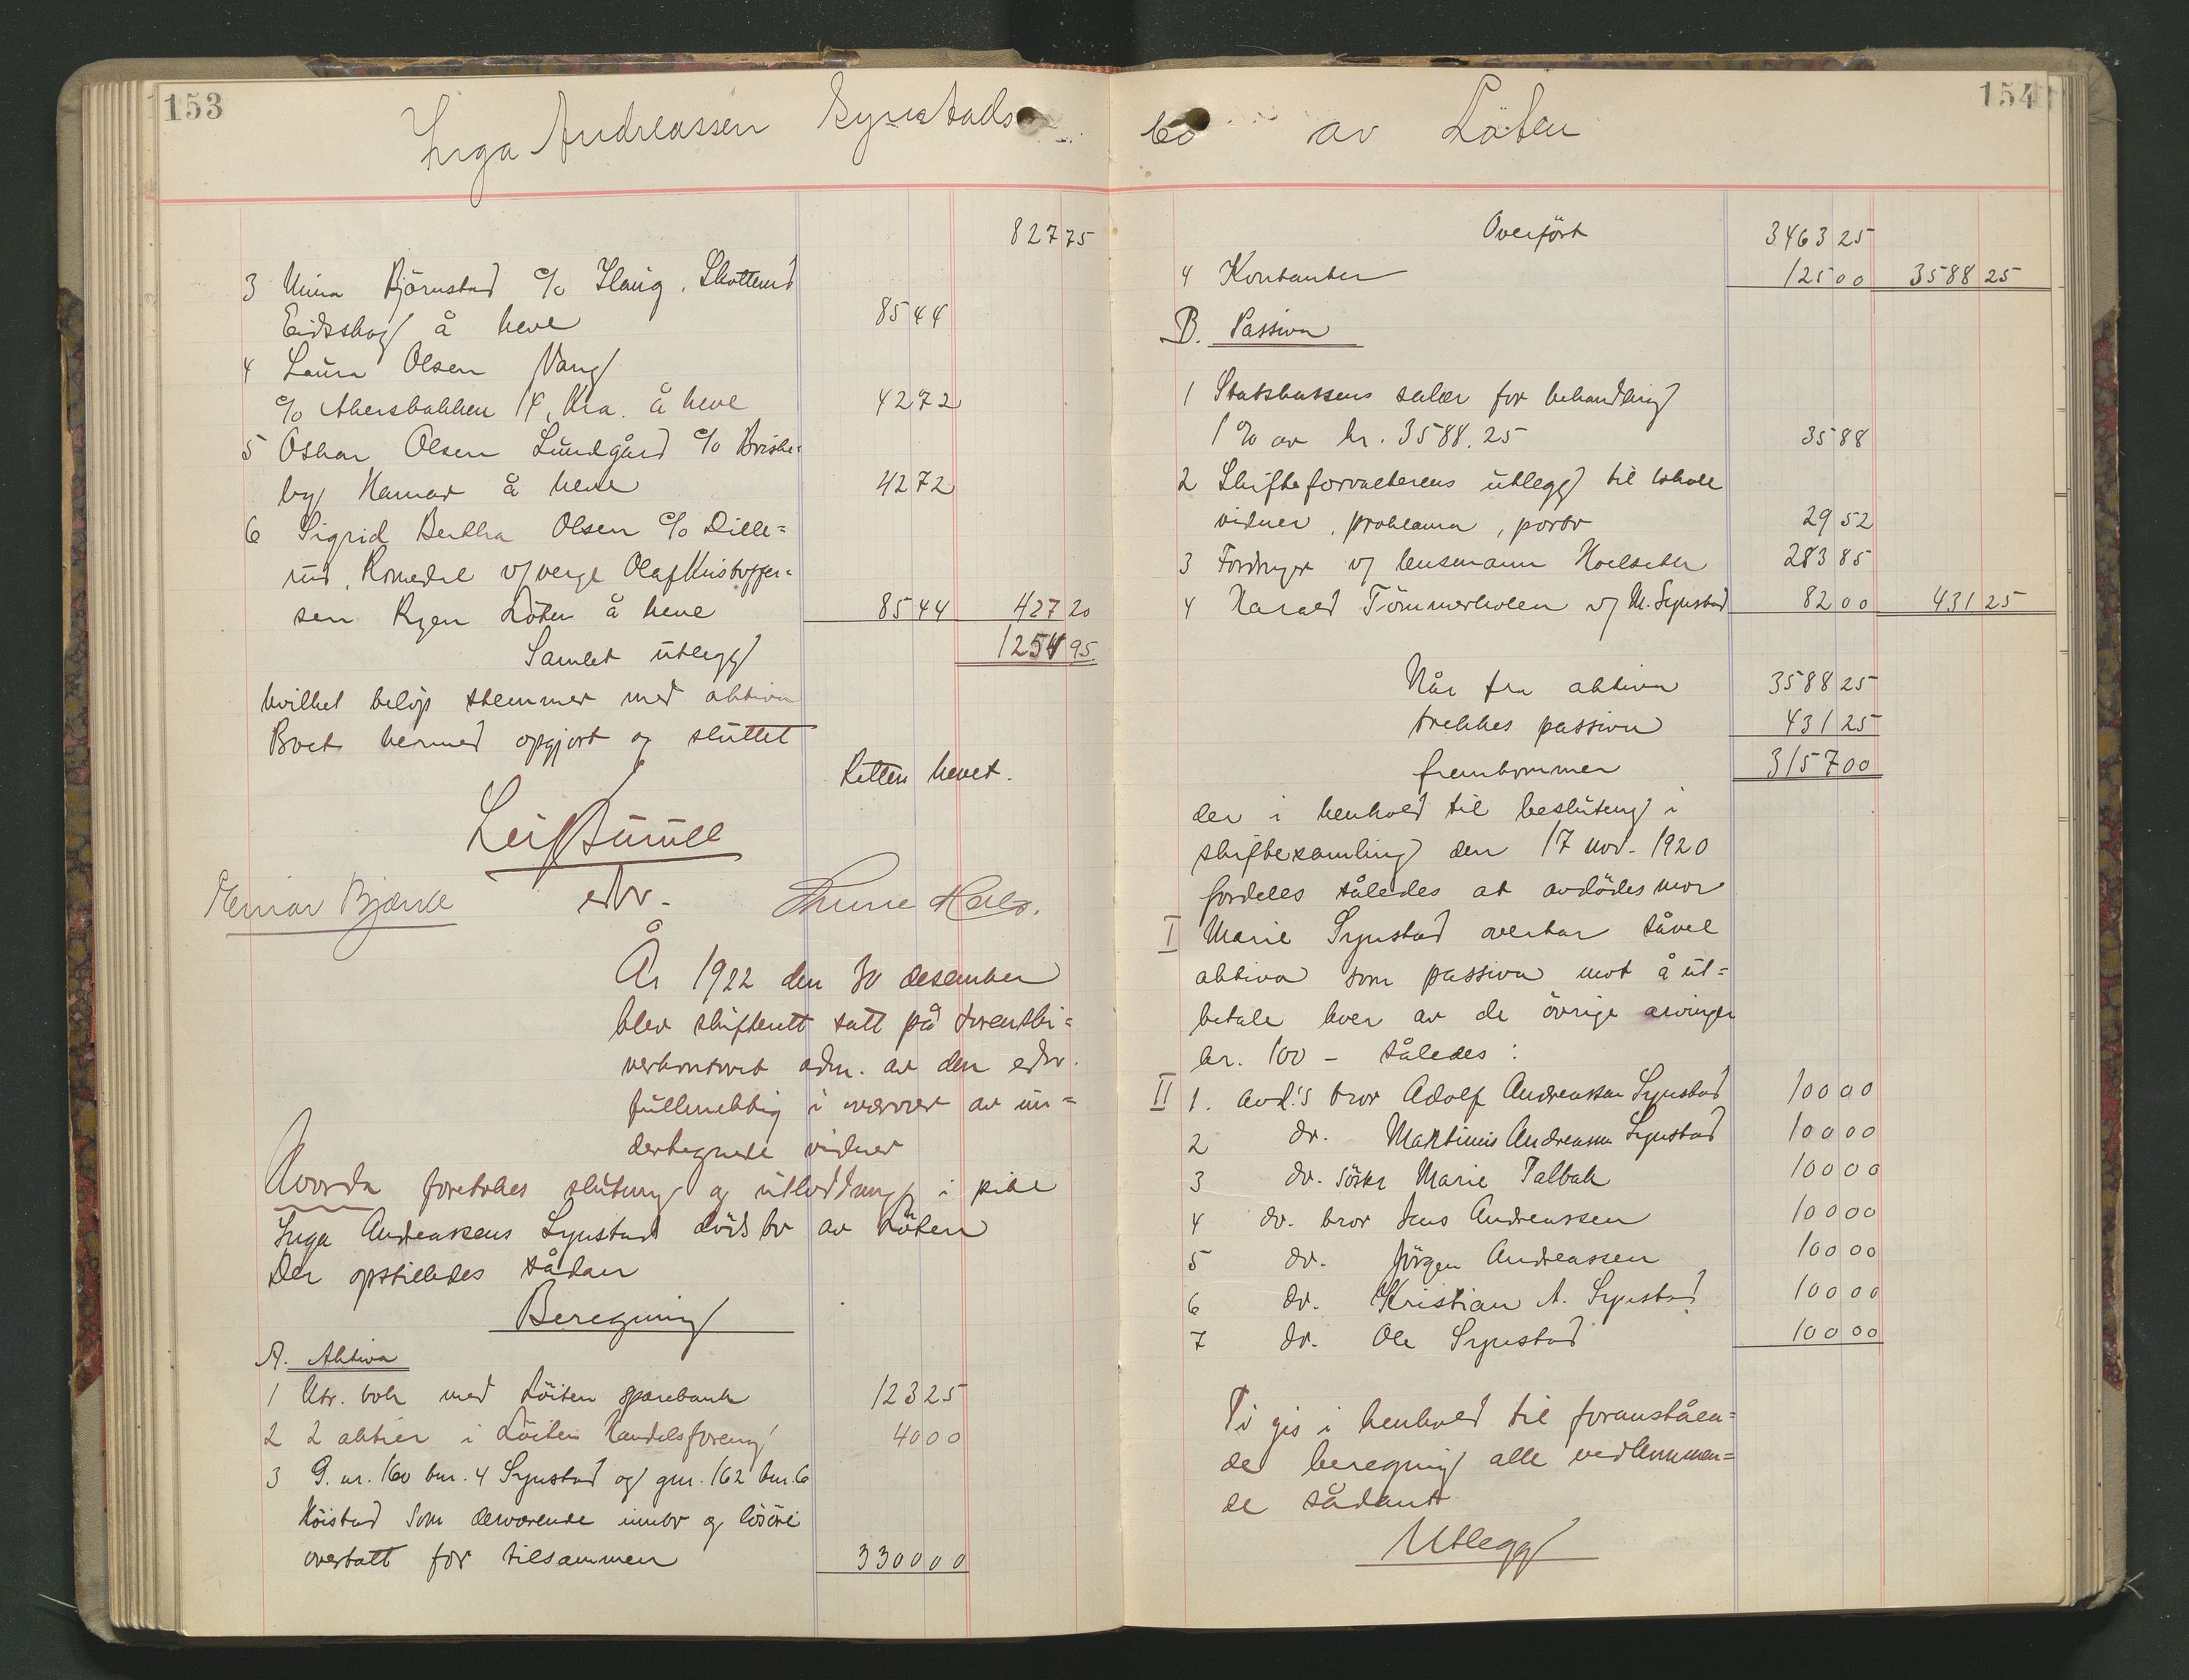 153
Inga Andreassen Synstads
827 75
3 Mina Björnstad c/o Haug, Skotterud
Eidskog å heve 85 44
4 Laura Olsen Vang
c/o Akersbakken 14, Kra. å heve 42 72
5 Oskar Olsen Lundgård c/o Briske=
by Hamar å heve 42 72
6 Sigrid Bertha Olsen c/o Dille=
rud, Romedal v/ verge Olaf Kristoffer=
sen Ryen Löten å heve 85 44 427 20
Samlet utlegg 1254 95
hvilket belöp stemmer med aktiva
Boet hermed opgjort og sluttet
Retten hevet.
Leif
Einar Bjørke edsv.
År 1922 den 30 desember
blev skifterett satt på sorenskri=
verkontoret adm. av den edsv.
fullmektig i nærvær av un=
dertegnede vidner
Hvorda foretokes slutning og utlodning i pike
Inga Andreassens Synstad dödsbo av Löten
Der opstilledes sådan
Beregning
A. Aktiva
1 Ktr. bok med Löiten sparebank 123 25
2 2 aktier i Löiten Handelsforening 40 00
3 G. nr. 160 bnr. 4 Synstad og gnr. 162 bnr. 6
Höistad som derværende innbo og lösöre
overtatt for tilsammen 3300 00
154
bo av Löten
Overfört 3463 25
4 Kontanter 125 00 3588 25
B. Passiva
1 Statskassens salær for behandling
1 % av kr. 3588.25 35 88
2 Skifteforvalterens utlegg til lokale
vidner, proklama, porto 29 52
3 Fordringer v/ lensmann Hoelseter 283 85
4 Harald Tömmerholen v/ M. Synstad 82 00 431 25
Når fra aktiva 3588 25
trekkes passiva 431 25
fremkommer 3157 00
der i henhold til beslutning i
skiftesamling den 17 nov. 1920
fordeles således at avdödes mor
I Marie Synstad overtar såvel
aktiva som passiva mot å ut=
betale hver av de övrige arvinger
kr. 100 - således:
II 1. avd.'s bror Adolf Andreassen Synstad 100 00
2 do. Martinus Andreassen Synstad 100 00
3 do. söster Marie Talbak 100 00
4 do. bror Jens Andreassen 100 00
5 do. Jörgen Andreassen 100 00
6 do. Kristian A. Synstad 100 00
7 do. Ole Synstad 100 00
Ti gis i henhold til foranståen=
de beregning alle vedkommen=
de sådant
Utlegg